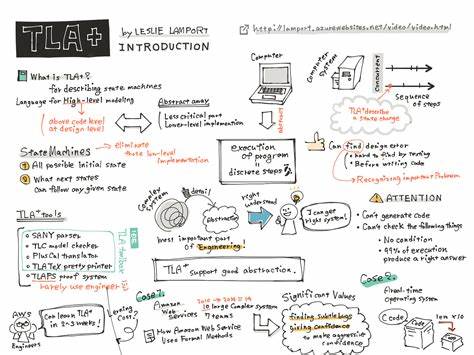 TLA+
by LESLIE LAMPORT
INTRODUCTION
http://lamport.azurewebsites.net/video/video.html
What is TLA+?
for describing state machines
Language for High-level modeling
above code level
at design level
Abstract away
Less critical part
Lower-level implemention
Computer
abstract
Computer System
Concurrent
Sequence of steps
TLA+ describe
a state change
State Machines
eliminate
low-level
implementation
1 All possible initial state
2 What next states
Can follow any given state
execution of
program =
discrete steps
Can find design error
• hard to find by testing
• Before writing code
Recognizing important Problem
Complex System
detail
abstraction
right
understand
I can get
right system!
most important part
of Engineering!
TLA+
support good abstraction.
ATTENTION
• Can't generate code
• Can't check the following things
• No condition
• 99% of execution
produce a right answer
TLA+ tools
• SANY parser
• TLC model checker
• PlusCal translator
• TLA TeX pretty printer
• TLAPS proof system
Rarely use engineer
IDE
TLA Toolbox
AWS
Engineers
Can learn TLA+
in 2~3 weeks!
Learning Cost
Case 1
Amazon
Web
Services
10 large Complex system
7 teams
How Amazon Web Service
Uses Formal Methods
Significant Values
finding subtle bugs
giving confidence
to make aggressive
confidence
Case 2
A real-time
operating system
Code
10m